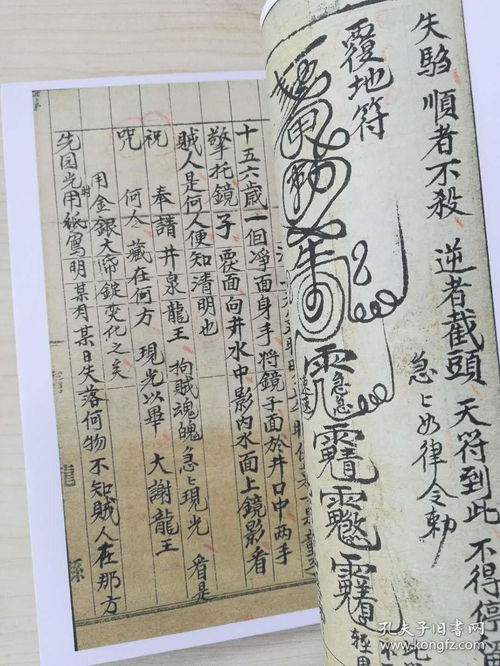 順者不殺 逆者截頭 天符到此 不得停
急々如律令勅
覆地符
急急
十五六歲一個凈面身手將鏡子面於井口中兩手
擎托鏡子覄面向井水中影内水面上鏡影看
賊人是何人便知清明也
祝 奉請井泉龍王 拘賊魂魄 急々現光 看是
咒 何人藏在何方 現光以畢 大謝龍王
用金銀大帛錠变化之矣
先囙光時用紙寫明某有某日失落何物不知賊人在那方
孔夫子旧書网
www.kongfz.com